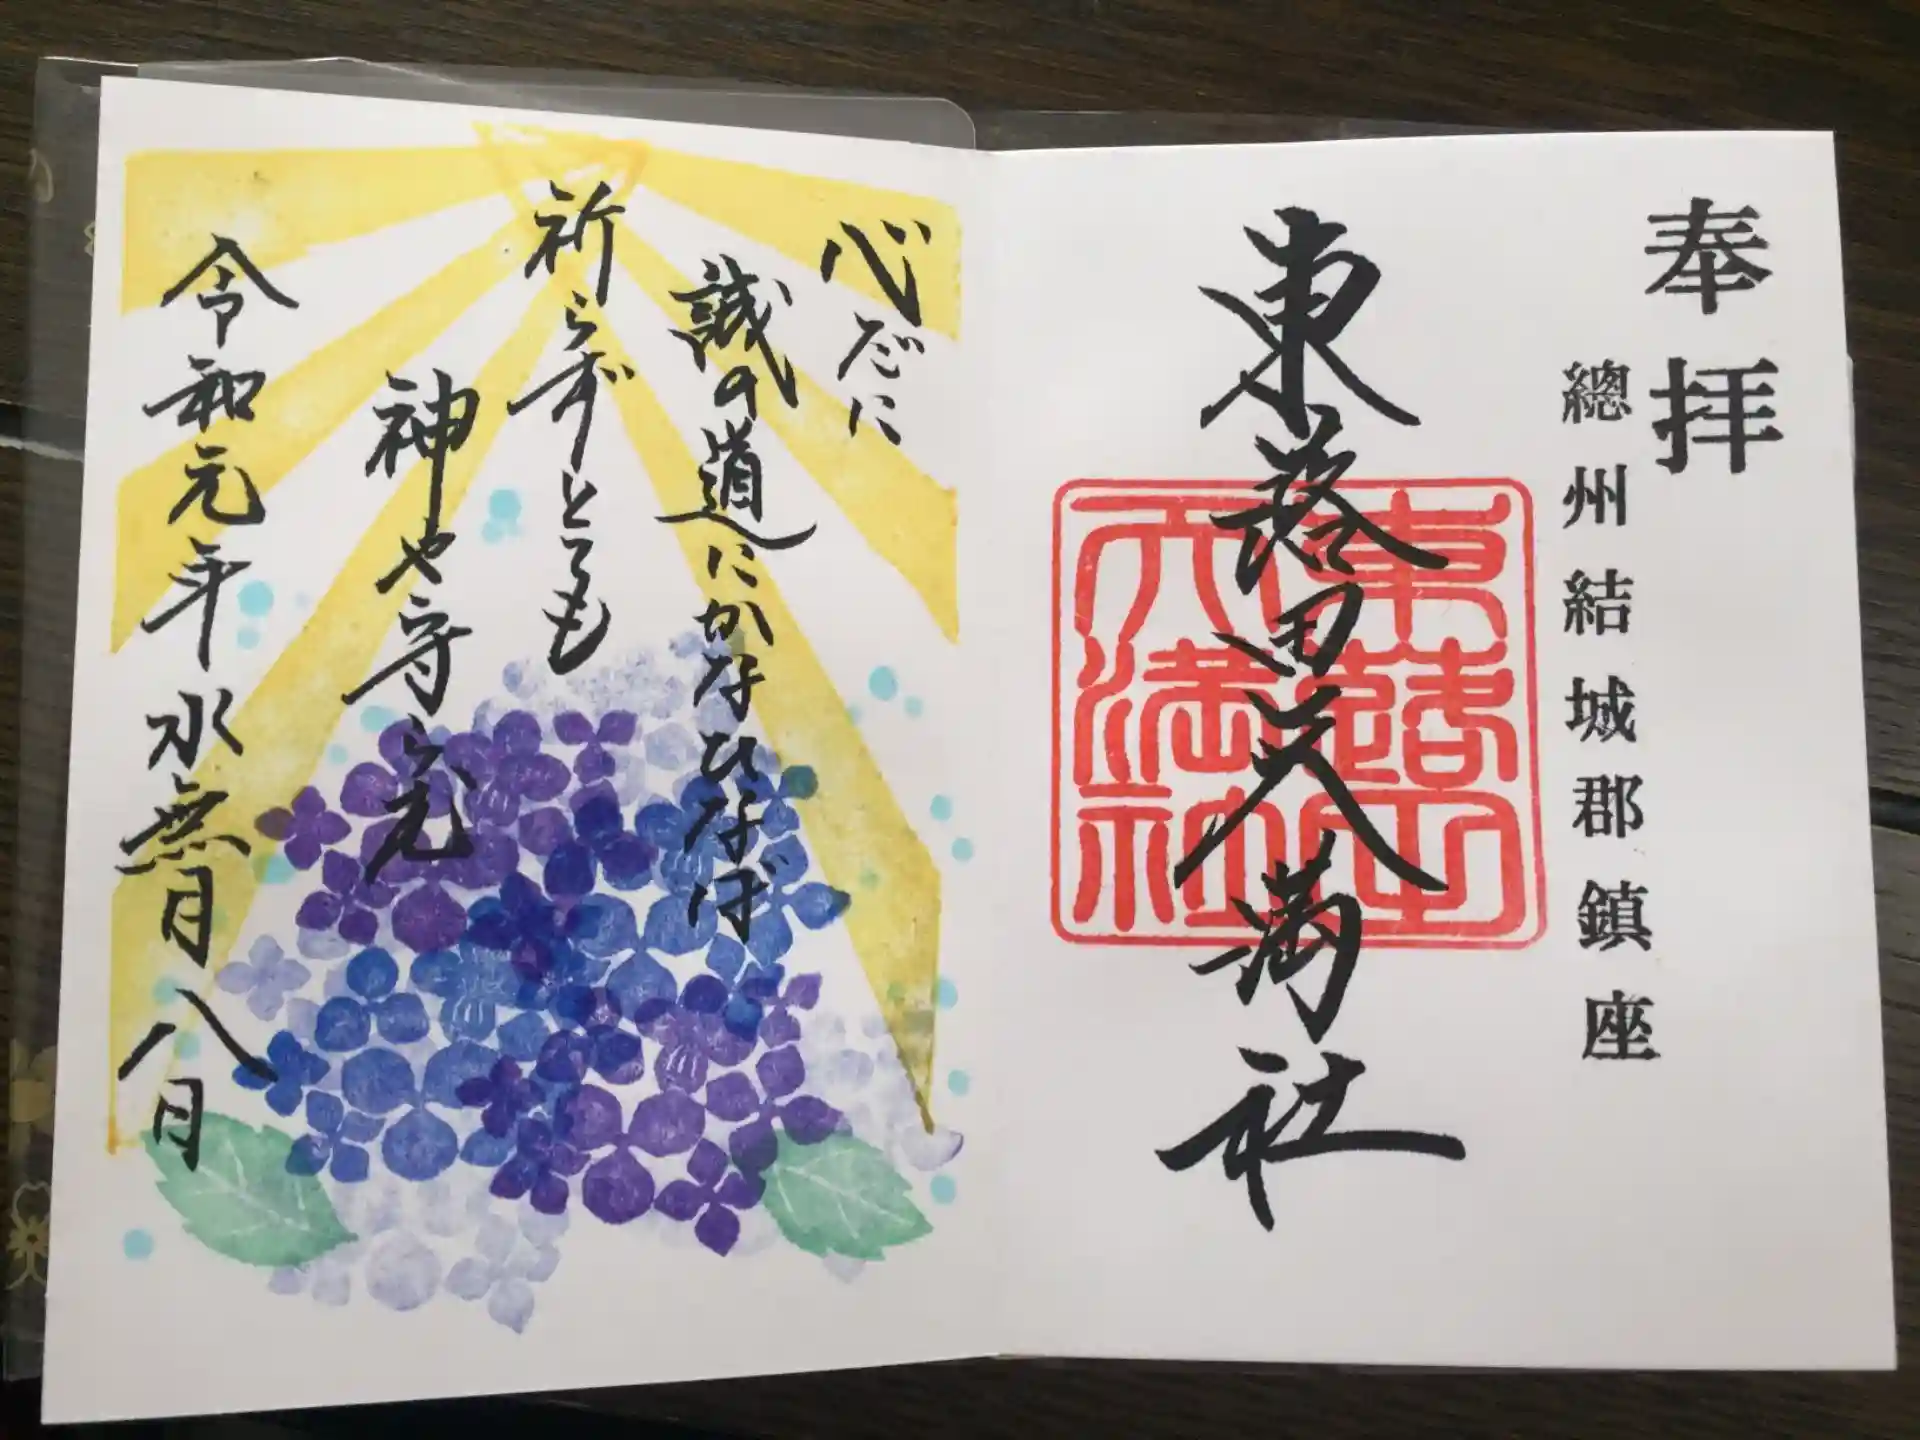 奉拝
總州結城郡鎮座
東蕗田天満社
東蕗田
天満社
心だに
誠の道にかなひなば
祈らずとても
神や守ら无
令和元年水無月八日